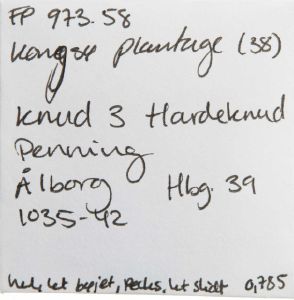 FP 973.58
Kongsø Plantage (38)
Knud 3 Hardeknud
Penning
Ålborg Hbg. 39
1035-42
hel, let bøjet, Præg, let slidt 0,785